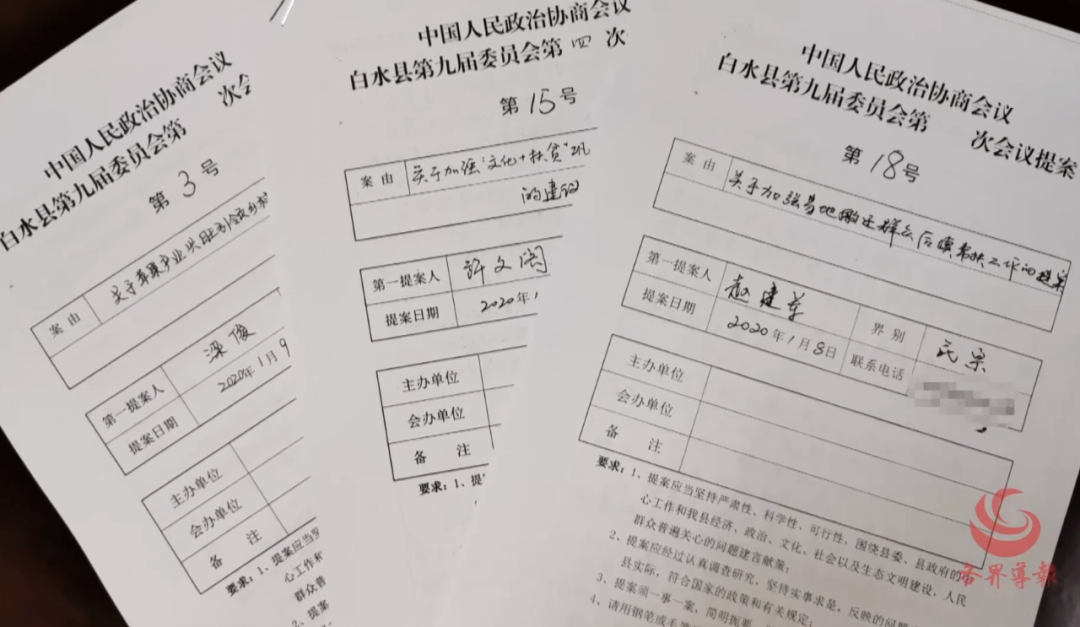 中国人民政治协商会议
白水县第九届委员会第 次会
第 3 号
案由 关于苹果产业
第一提案人 梁俊
提案日期 2020年1月9
主办单位
会办单位
备 注
要求：1、提案应当坚
心工作和
群众普
2、提案
中国人民政治协商会议
白水县第九届委员会第 四 次
第 15 号
案由 关于加强“文化+扶贫”巩
的建议
第一提案人 许文阁
提案日期 2020年1
主办单位
会办单位
备 注
要求：1、提
中国人民政治协商会议
白水县第九届委员会第 次会议提案
第 18 号
案由 关于加强易地搬迁群众后续帮扶工作的提案
第一提案人 赵建革 界别 民宗
提案日期 2020年1月8日 联系电话
主办单位
会办单位
备 注
要求：1、提案应当坚持严肃性、科学性、可行性，围绕县委、县政府的
心工作和我县经济、政治、文化、社会以及生态文明建设，人民
群众普遍关心的问题建言献策；
2、提案应经过认真调查研究，坚持实事求是，反映的问题
县实际，符合国家的政策和有关规定；
3、提案须一事一案，简明扼要，
4、请用钢笔或毛笔
各界导报